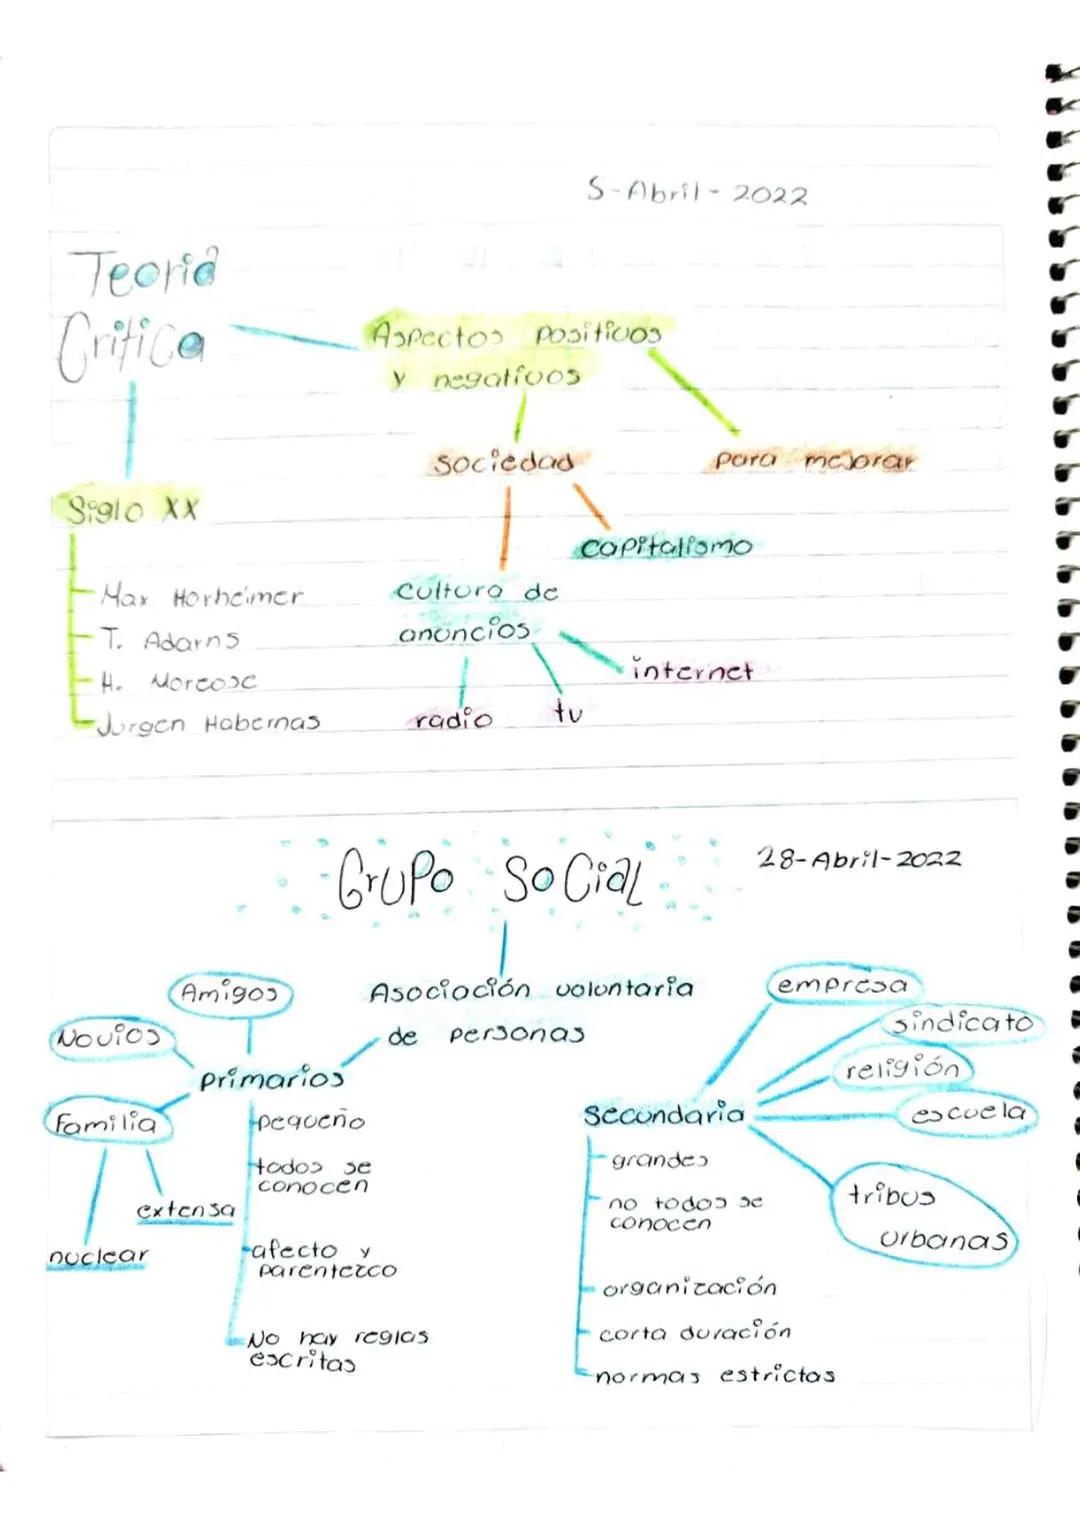 5-Abril-2022
Teoria
Critica
Aspectos positivos
y negativos
sociedad
para mejorar
Siglo XX
capitalismo
Max Horheimer
T. Adarns
H. Morcose
Jurgen Habernas
cultura de
anuncios
internet
radio
tv
Grupo Social
28-Abril-2022
Asociación voluntaria
de personas
Amigos
Novios
primarios
Familia
extensa
nuclear
pequeño
todos se
conocen
afecto y
parentezco
No hay reglas
escritas
empresa
sindicato
religión
escuela
tribus
urbanas
Secundaria
grandes
no todos se
conocen
organización
corta duración
normas estrictas